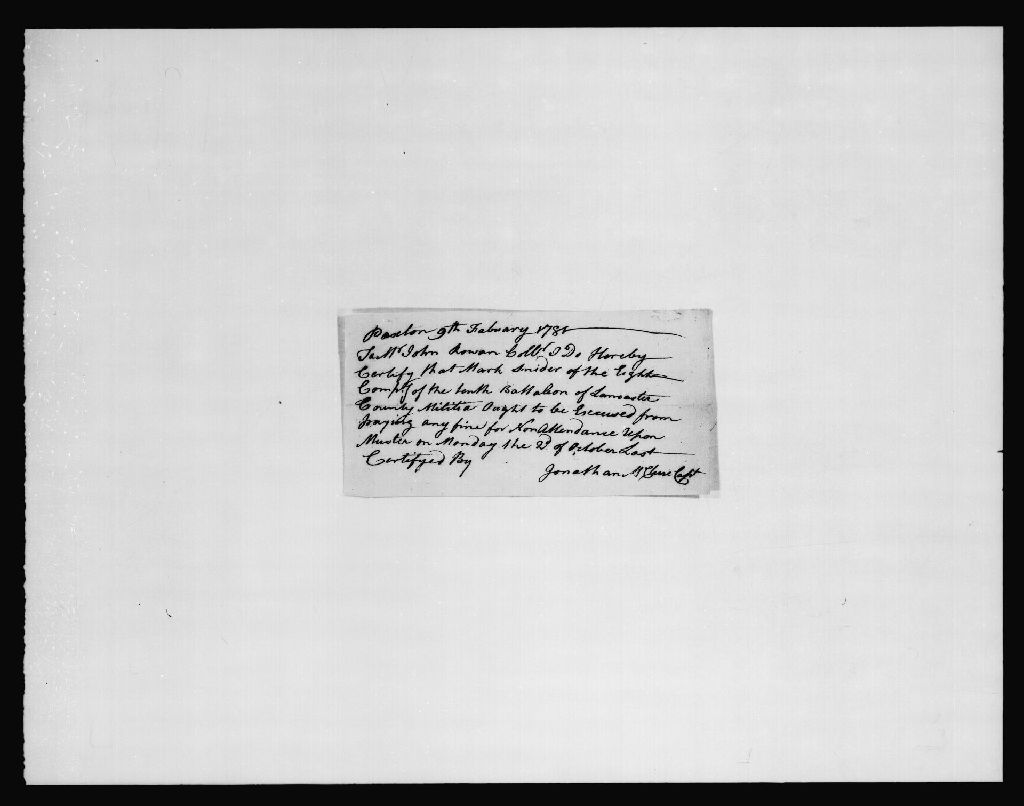 Paxton 9th Febuary 1781
To Mr John Rowan Collr I Do Hereby
Certify that Mark Snider of the Eighth
Compy of the tenth Battalion of Lancaster
County Militia Ought to be Excused from
paying any fine for Non Attendance Upon
Muster on Monday the 2d of October Last
Certifyed By
Jonathan McClure Capt